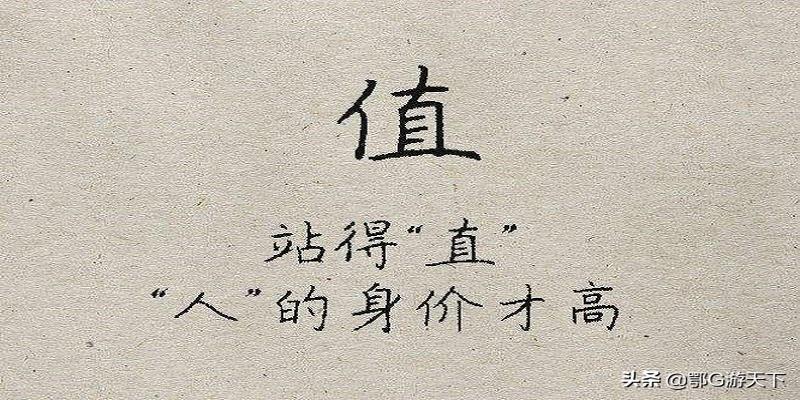 值
站得“直”
“人”的身价才高
头条 @鄂G游天下